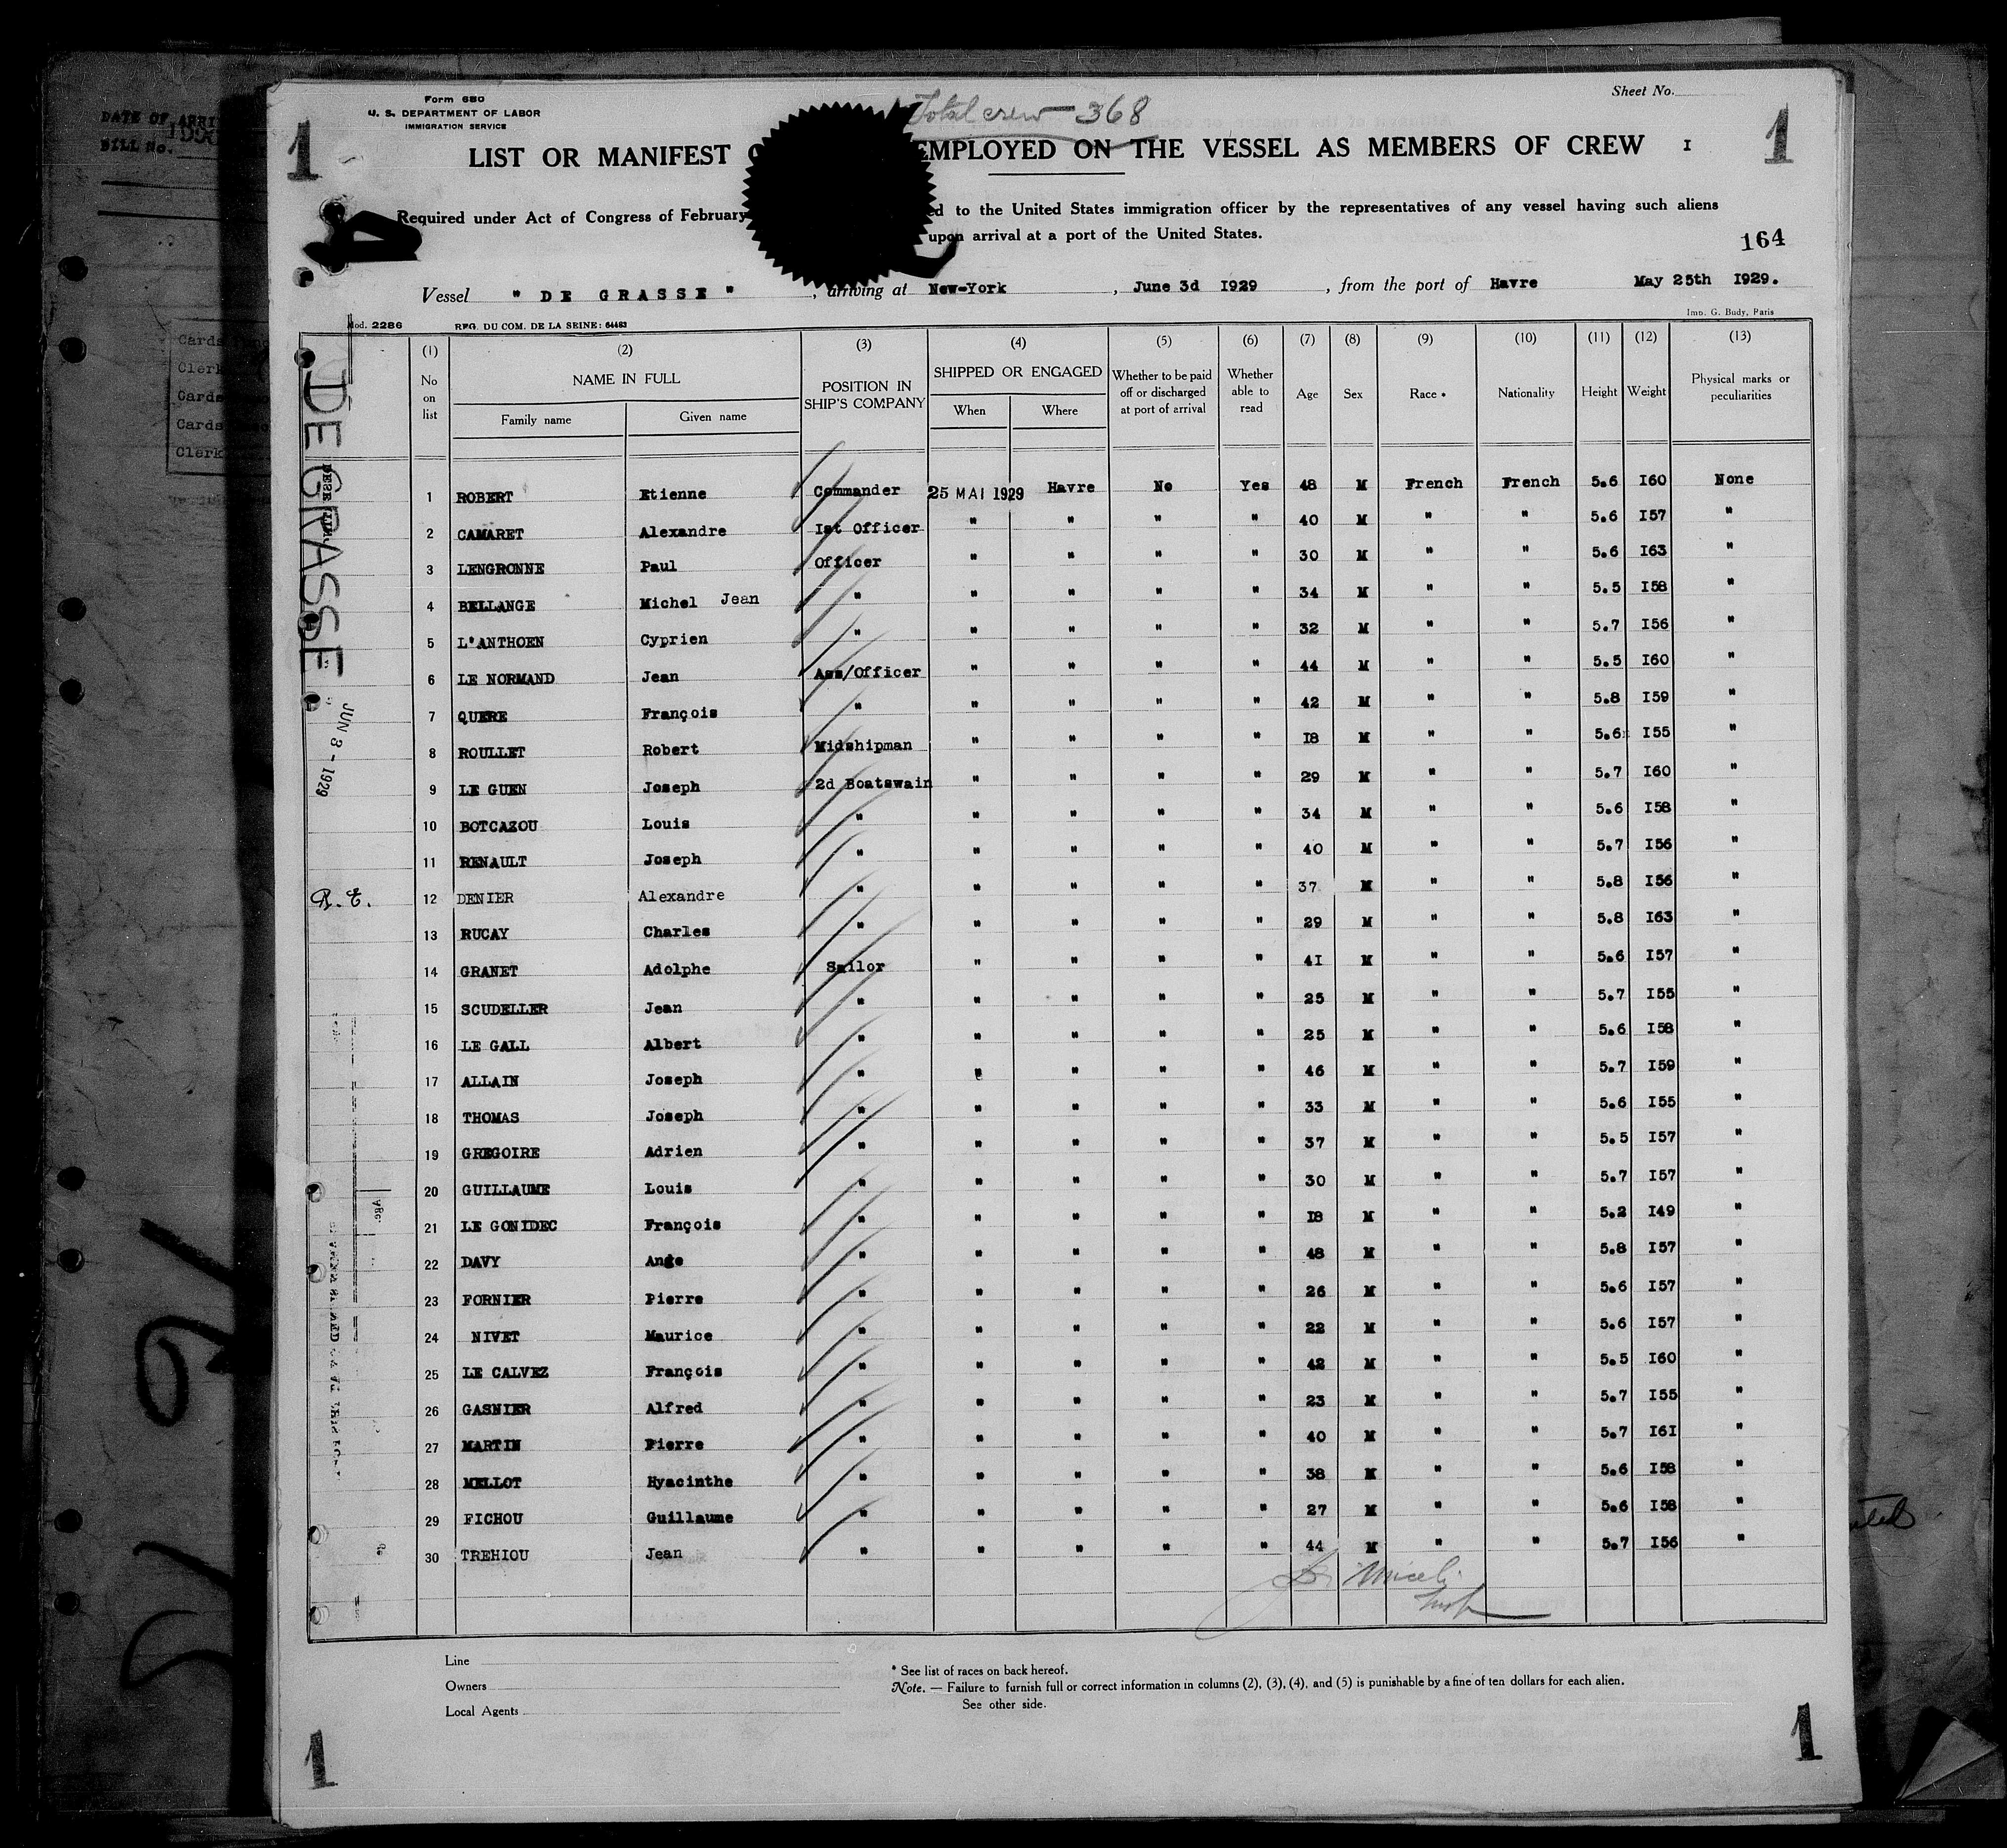 DATE OF ARRI
BILL No.
Cards
Clerk
Cards
Cards
Clerk
Form 680
U. S. DEPARTMENT OF LABOR
IMMIGRATION SERVICE
Total crew - 368
Sheet No.
1
1
LIST OR MANIFEST EMPLOYED ON THE VESSEL AS MEMBERS OF CREW I
Required under Act of Congress of February to the United States immigration officer by the representatives of any vessel having such aliens
upon arrival at a port of the United States.
164
Vessel " DE GRASSE " , arriving at New-York , June 3d 1929 , from the port of Havre May 25th 1929.
Mod. 2286 REG. DU COM. DE LA SEINE: 64483 Imp. G. Budy, Paris
(1) (2) (3) (4) (5) (6) (7) (8) (9) (10) (11) (12) (13)
No on list NAME IN FULL POSITION IN SHIP'S COMPANY SHIPPED OR ENGAGED Whether to be paid off or discharged at port of arrival Whether able to read Age Sex Race * Nationality Height Weight Physical marks or peculiarities
Family name Given name When Where
1 ROBERT Etienne Commander 25 MAI 1929 Havre No Yes 48 M French French 5.6 I60 None
2 CAMARET Alexandre Ist Officer " " " " 40 M " " 5.6 I57 "
3 LENGRONNE Paul Officer " " " " 30 M " " 5.6 I63 "
4 BELLANGE Michel Jean " " " " " 34 M " " 5.5 I58 "
5 L'ANTHOEN Cyprien " " " " " 32 M " " 5.7 I56 "
6 LE NORMAND Jean Ass/Officer " " " " 44 M " " 5.5 I60 "
7 QUERE François " " " " " 42 M " " 5.8 I59 "
8 ROULLET Robert Midshipman " " " " I8 M " " 5.6 I55 "
9 LE GUEN Joseph 2d Boatswain " " " " 29 M " " 5.7 I60 "
10 BOTCAZOU Louis " " " " " 34 M " " 5.6 I58 "
11 RENAULT Joseph " " " " " 40 M " " 5.7 I56 "
R. E. 12 DENIER Alexandre " " " " " 37 M " " 5.8 I56 "
13 RUCAY Charles " " " " " 29 M " " 5.8 I63 "
14 GRANET Adolphe Sailor " " " " 4I M " " 5.6 I57 "
15 SCUDELLER Jean " " " " " 25 M " " 5.7 I55 "
16 LE GALL Albert " " " " " 25 M " " 5.6 I58 "
17 ALLAIN Joseph " " " " " 46 M " " 5.7 I59 "
18 THOMAS Joseph " " " " " 33 M " " 5.6 I55 "
19 GREGOIRE Adrien " " " " " 37 M " " 5.5 I57 "
20 GUILLAUME Louis " " " " " 30 M " " 5.7 I57 "
21 LE GONIDEC François " " " " " I8 M " " 5.2 I49 "
22 DAVY Ange " " " " " 48 M " " 5.8 I57 "
23 FORNIER Pierre " " " " " 26 M " " 5.6 I57 "
24 NIVET Maurice " " " " " 22 M " " 5.6 I57 "
25 LE CALVEZ François " " " " " 42 M " " 5.5 I60 "
26 GASNIER Alfred " " " " " 23 M " " 5.7 I55 "
27 MARTIN Pierre " " " " " 40 M " " 5.7 I6I "
28 MELLOT Hyacinthe " " " " " 38 M " " 5.6 I58 "
29 FICHOU Guillaume " " " " " 27 M " " 5.6 I58 "
30 TREHIOU Jean " " " " " 44 M " " 5.7 I56 "
DE GRASSE
JUN 3 - 1929
Line
Owners
Local Agents
* See list of races on back hereof.
Note. — Failure to furnish full or correct information in columns (2), (3), (4), and (5) is punishable by a fine of ten dollars for each alien.
See other side.
1
1